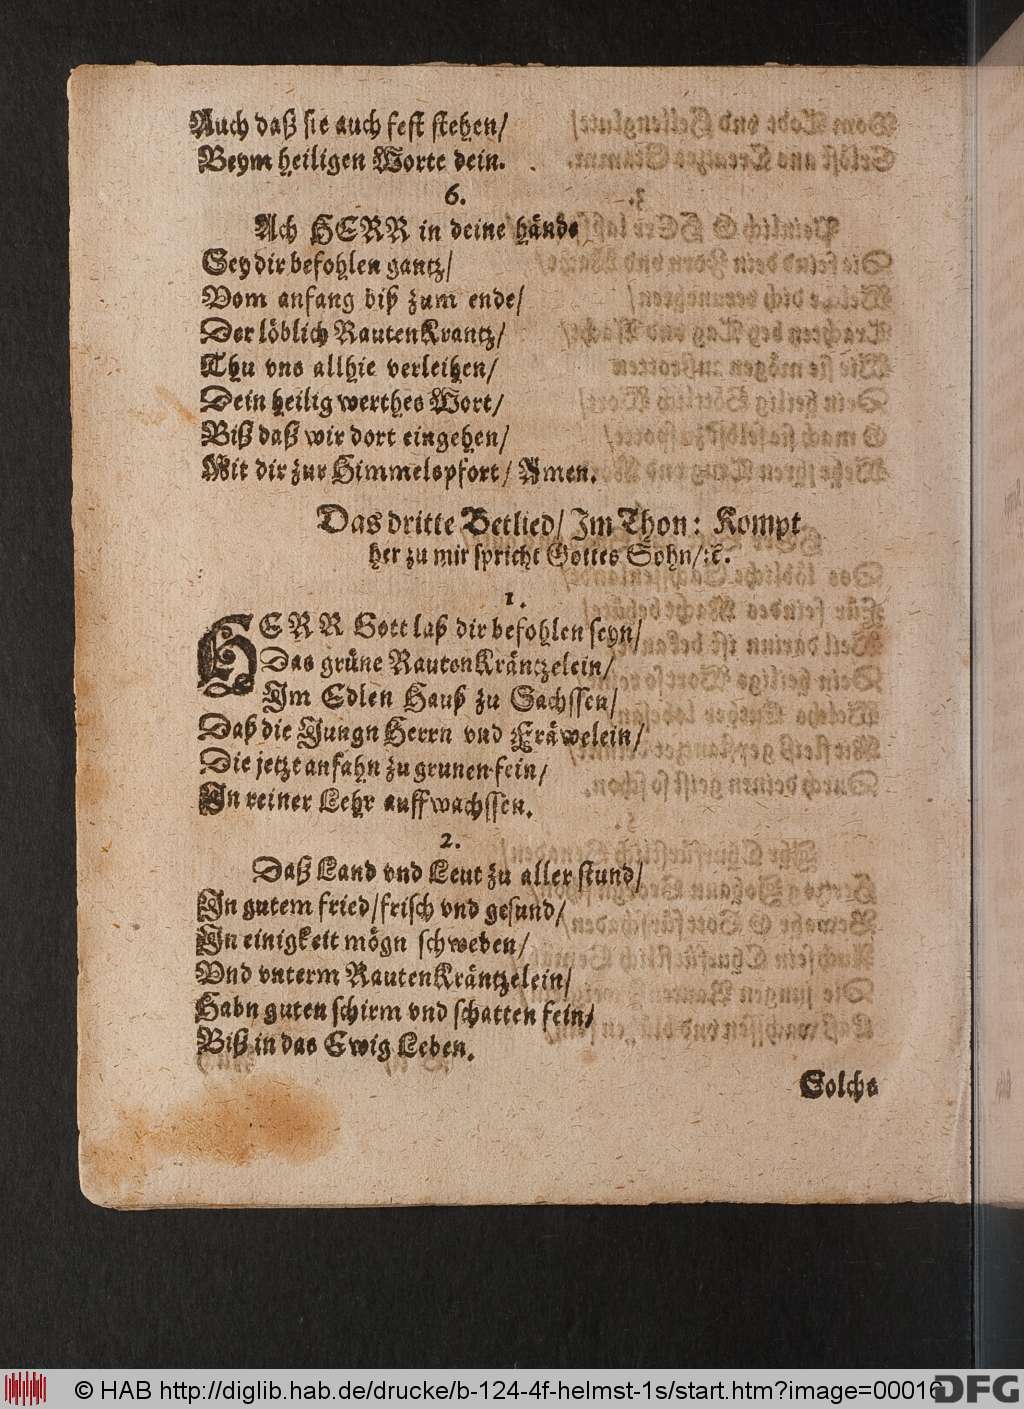 Auch daß sie auch fest stehen/
Beym heiligen Worte dein.
6.
Ach HERR in deine hände
Sey dir befohlen gantz/
Vom anfang biß zum ende/
Der löblich RautenKrantz/
Thu vns allhie verleihen/
Dein heilig werthes Wort/
Biß daß wir dort eingehen/
Mit dir zur Himmelspfort/ Amen.
Das dritte Betlied/ Im Thon: Kompt
her zu mir spricht Gottes Sohn/ꝛc.
1.
HERR Gott laß dir befohlen seyn/
Das grüne RautenKräntzelein/
Im Edlen Hauß zu Sachssen/
Daß die Jungn Herrn vnd Fräwelein/
Die jetzt anfahn zu grunen fein/
In reiner Lehr auffwachssen.
2.
Daß Land vnd Leut zu aller stund/
In gutem fried/frisch vnd gesund/
In einigkeit mögn schweben/
Vnd vnterm RautenKräntzelein/
Habn guten schirm vnd schatten fein/
Biß in das Ewig Leben.
Solchs
© HAB http://diglib.hab.de/drucke/b-124-4f-helmst-1s/start.htm?image=00016
DFG